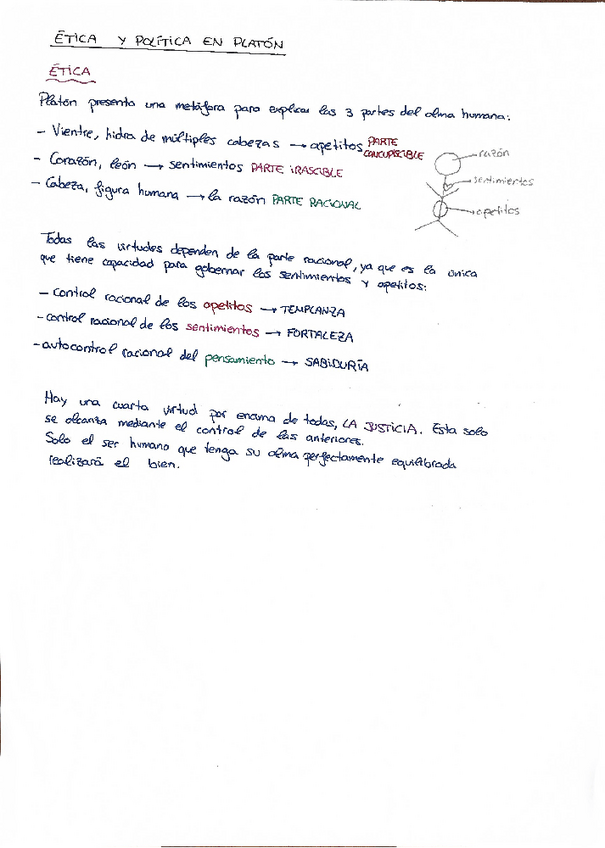 ÉTICA Y POLÍTICA EN PLATÓN
ÉTICA
Platón presenta una metáfora para explicar las 3 partes del alma humana:
- Vientre, hidra de múltiples cabezas → apetitos PARTE CONCUPISCIBLE
- Corazón, león → sentimientos PARTE IRASCIBLE
- Cabeza, figura humana → la razón PARTE RACIONAL
razón
sentimientos
apetitos
Todas las virtudes dependen de la parte racional, ya que es la única
que tiene capacidad para gobernar los sentimientos y apetitos:
- control racional de los apetitos → TEMPLANZA
- control racional de los sentimientos → FORTALEZA
- autocontrol racional del pensamiento → SABIDURÍA
Hay una cuarta virtud por encima de todas, LA JUSTICIA. Esta solo
se alcanza mediante el control de las anteriores.
Solo el ser humano que tenga su alma perfectamente equilibrada
realizará el bien.